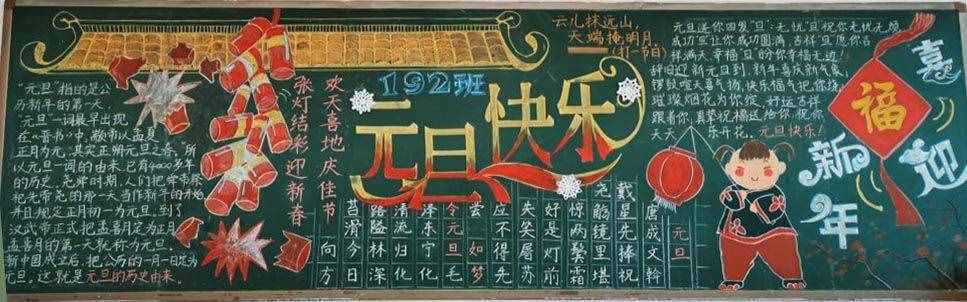 云儿抹远山,
天端掩明月。
(打一节日)
192班
元旦快乐
"元旦"指的是公
历新年的第一天,
"元旦"一词最早出现
在《晋书》中,颛帝以孟夏
正月为元,其实正朔元旦之春。所
以元旦一词的由来,已有4000多年
的历史。尧舜时期,人们把舜帝祭
祀先帝尧的那一天当作新年的开始
并且规定正月初一为元旦。到了
汉武帝正式把孟喜月定为正月
孟喜月的第一天就称为元旦。
新中国成立后,把公历的一月一日定为
元旦。这就是元旦的历史由来
欢天喜地庆佳节
张灯结彩迎新春
元旦
唐成文斡
戴星先捧祝
尧觞镜里堪
惊两鬓霜
好是灯前
失笑屠苏
应不得先
尝 如梦
令元旦毛
泽东宁化
清流归化
路隘林深
苔滑今日
向方
元旦送你四发"旦":无忧"旦"祝你无忧无烦
成功"旦"让你成功圆满,吉祥"旦"愿你吉
祥满天,幸福"旦"的你幸福无边!
辞旧迎新元旦到,新年喜庆新气象,
锣鼓喧天喜气扬,快乐福气把你绕,
璀璨烟花为你绽,好运吉祥
跟着你,真挚祝福送给你,祝你
天天 乐开花。元旦快乐!
福
喜迎
新年